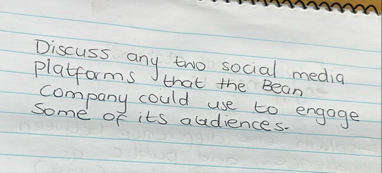 Discuss any two social media
platforms that the Bean
Company could use to engage
some of its audiences.